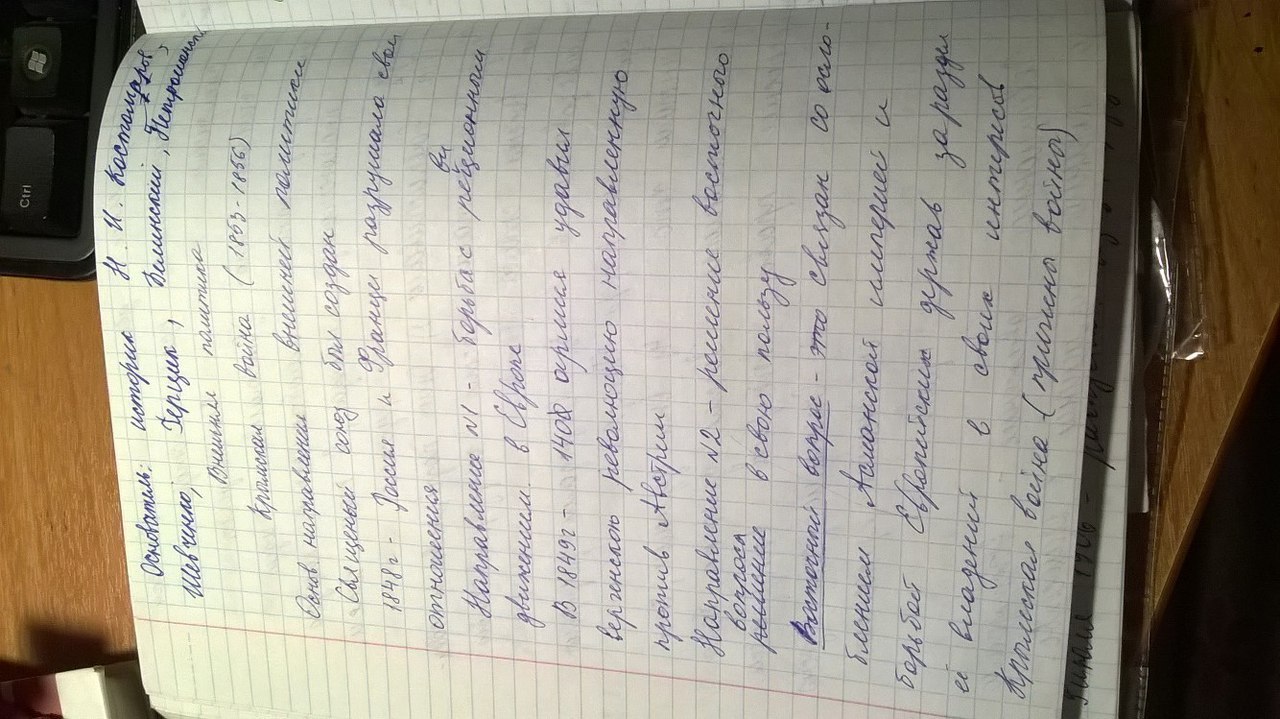 Основатиль: историк Н. И. Костомаров,
Шевченко, Герцик, Белинский, Петрашевск
Внишния политика
Крымская война (1853-1856)
Основ направления внешней политики
Священый союз был создан
1848г - Россия и Франци разрушала свои
отношения
Направление №1 - борьба с реционным
ви
движением в Европе
В 1849г - 140ф армия удавил
венгерскою революцию направленную
против Австрии
Направление №2 - решение восточного
вопроса
решение в свою пользу
Восточный вопрос - это связан со осла-
блением Асманской империей и
борьбой Европийских держав за раздел
её владений в своих интиресов
Крымская война (причины войны)
Ctrl